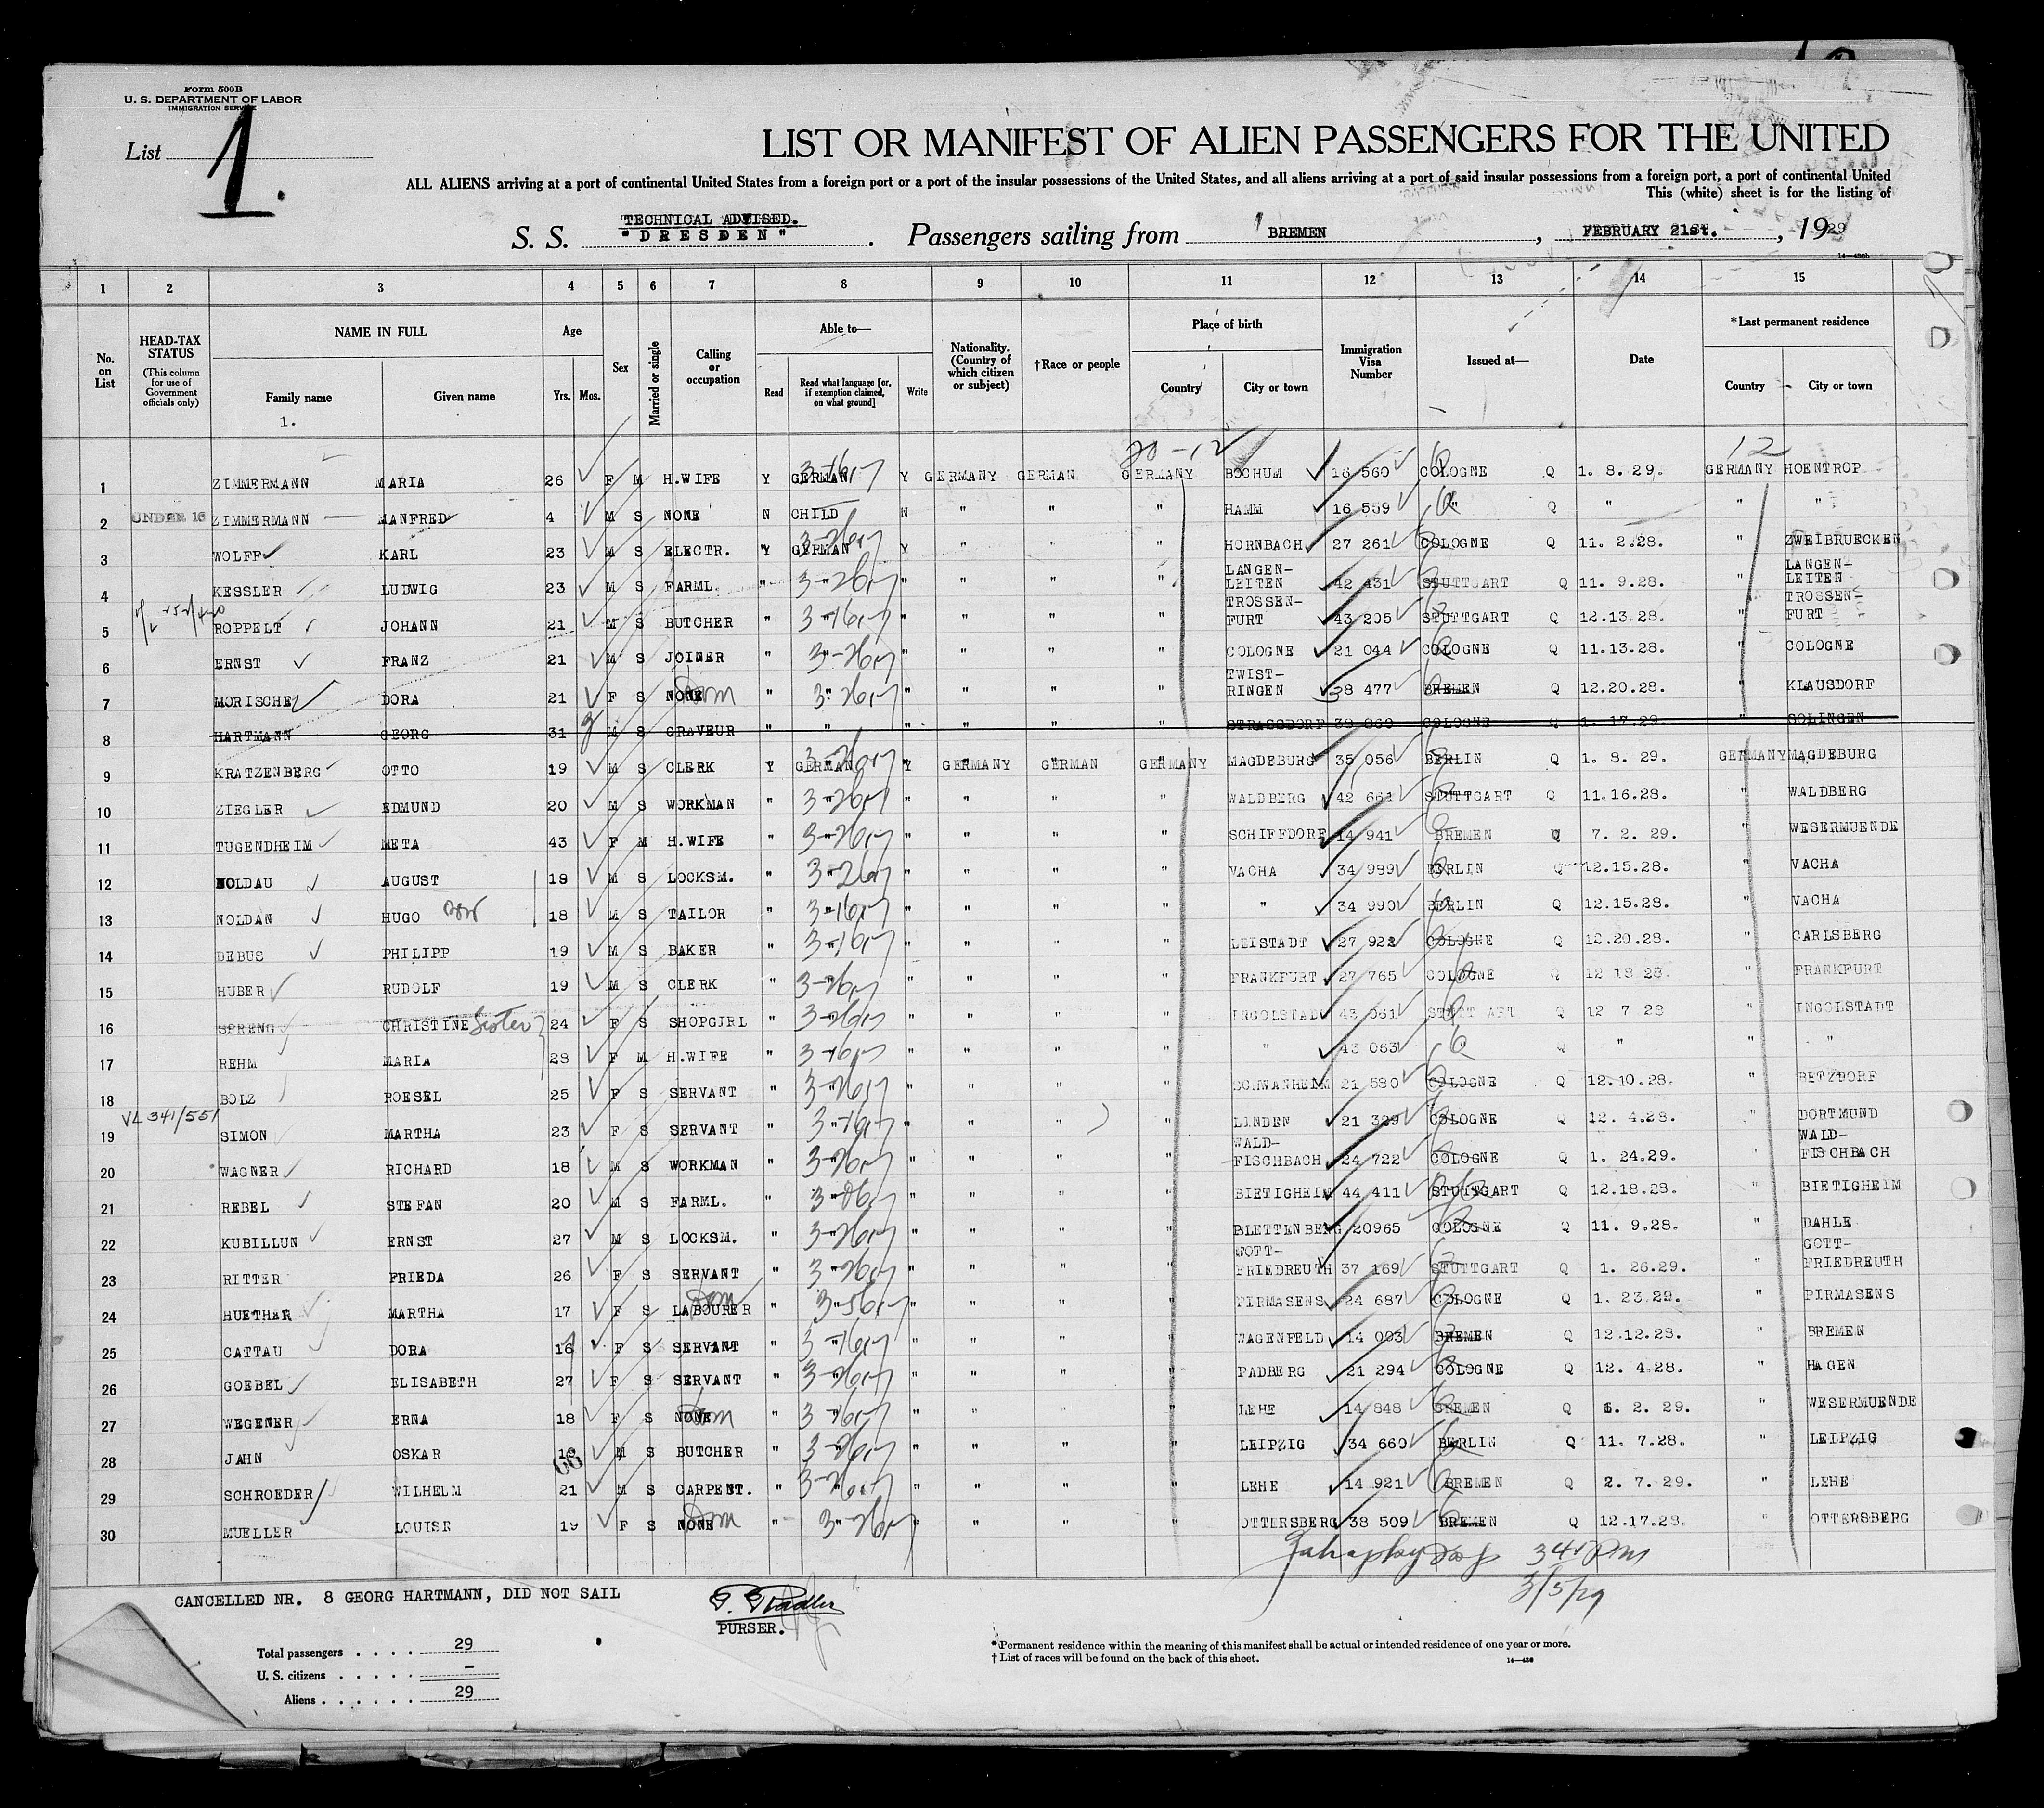 Form 500B
U. S. DEPARTMENT OF LABOR
IMMIGRATION SERVICE
List 1.
LIST OR MANIFEST OF ALIEN PASSENGERS FOR THE UNITED
ALL ALIENS arriving at a port of continental United States from a foreign port or a port of the insular possessions of the United States, and all aliens arriving at a port of said insular possessions from a foreign port, a port of continental United
This (white) sheet is for the listing of
TECHNICAL ADVISED.
S. S. "DRESDEN" . Passengers sailing from BREMEN , FEBRUARY 21st. , 1929
14—430b
1 2 3 4 5 6 7 8 9 10 11 12 13 14 15
No. on List
HEAD-TAX STATUS
(This column for use of Government officials only)
NAME IN FULL
Family name
Given name
1.
Age
Yrs. Mos.
Sex
Married or single
Calling or occupation
Able to—
Read
Read what language [or, if exemption claimed, on what ground]
Write
Nationality. (Country of which citizen or subject)
†Race or people
Place of birth
Country
City or town
Immigration Visa Number
Issued at—
Date
*Last permanent residence
Country
City or town
20-12 12
1 ZIMMERMANN MARIA 26 F M H.WIFE Y GERMAN Y GERMANY GERMAN GERMANY BOCHUM 16 560 COLOGNE Q 1. 8. 29. GERMANY HOENTROP
2 UNDER 16 ZIMMERMANN MANFRED 4 M S NONE N CHILD N " " " HAMM 16 559 " Q " " "
3 WOLFF KARL 23 M S ELECTR. Y GERMAN Y " " " HORNBACH 27 261 COLOGNE Q 11. 2.28. " ZWEIBRUECKEN
4 KESSLER LUDWIG 23 M S FARML. " " " " " " LANGEN-LEITEN 42 431 STUTTGART Q 11. 9.28. " LANGEN-LEITEN
5 ROPPELT JOHANN 21 M S BUTCHER " " " " " " TROSSEN-FURT 43 205 STUTTGART Q 12.13.28. " TROSSEN-FURT
6 ERNST FRANZ 21 M S JOINER " " " " " " COLOGNE 21 044 COLOGNE Q 11.13.28. " COLOGNE
7 MORISCHE DORA 21 F S NONE Dom " " " " " " TWIST-RINGEN 38 477 BREMEN Q 12.20.28. " KLAUSDORF
8 HARTMANN GEORG 31 M S GRAVEUR " " " " " " STRASSDORF 39 869 COLOGNE Q 1. 17.29. " SOLINGEN
9 KRATZENBERG OTTO 19 M S CLERK Y GERMAN Y GERMANY GERMAN GERMANY MAGDEBURG 35 056 BERLIN Q 1. 8. 29. GERMANY MAGDEBURG
10 ZIEGLER EDMUND 20 M S WORKMAN " " " " " " WALDBERG 42 661 STUTTGART Q 11.16.28. " WALDBERG
11 TUGENDHEIM META 43 F M H.WIFE " " " " " " SCHIFFDORF 14 941 BREMEN Q 7. 2. 29. " WESERMUENDE
12 NOLDAU AUGUST 19 M S LOCKSM. " " " " " " VACHA 34 989 BERLIN Q 12.15.28. " VACHA
13 NOLDAN HUGO 18 M S TAILOR " " " " " " " 34 990 BERLIN Q 12.15.28. " VACHA
14 DEBUS PHILIPP 19 M S BAKER " " " " " " LEISTADT 27 922 COLOGNE Q 12.20.28. " CARLSBERG
15 HUBER RUDOLF 19 M S CLERK " " " " " FRANKFURT 27 765 COLOGNE Q 12 18 28. " FRANKFURT
16 SPRENG CHRISTINE Sister 24 F S SHOPGIRL " " " " " " INGOLSTADT 43 061 STUTTGART Q 12 7 28 " INGOLSTADT
17 REHM MARIA 28 F M H.WIFE " " " " " " " 43 063 " Q " " "
18 BOLZ ROESEL 25 F S SERVANT " " " " " " SCHWANHEIM 21 580 COLOGNE Q 12.10.28. " BETZDORF
VL 341/551
19 SIMON MARTHA 23 F S SERVANT " " " " " " LINDEN 21 329 COLOGNE Q 12. 4.28. " DORTMUND
20 WAGNER RICHARD 18 M S WORKMAN " " " " " " WALD-FISCHBACH 24 722 COLOGNE Q 1. 24.29. " WALD-FISCHBACH
21 REBEL STEFAN 20 M S FARML. " " " " " " BIETIGHEIM 44 411 STUTTGART Q 12.18.28. " BIETIGHEIM
22 KUBILLUN ERNST 27 M S LOCKSM. " " " " " " BLETTENBERG 20965 COLOGNE Q 11. 9.28. " DAHLE
23 RITTER FRIEDA 26 F S SERVANT " " " " " " GOTT-FRIEDREUTH 37 169 STUTTGART Q 1. 26.29. " GOTT-FRIEDREUTH
24 HUETHER MARTHA 17 F S LABOURER Dom " " " " " " PIRMASENS 24 687 COLOGNE Q 1. 23.29. " PIRMASENS
25 CATTAU DORA 16 F S SERVANT " " " " " " WAGENFELD 14 093 BREMEN Q 12.12.28. " BREMEN
26 GOEBEL ELISABETH 27 F S SERVANT " " " " " " PADBERG 21 294 COLOGNE Q 12. 4.28. " HAGEN
27 WEGENER ERNA 18 F S NONE Dom " " " " " " LEHE 14 848 BREMEN Q 1. 2. 29. " WESERMUENDE
28 JAHN OSKAR 18 M S BUTCHER " " " " " " LEIPZIG 34 660 BERLIN Q 11. 7.28. " LEIPZIG
29 SCHROEDER WILHELM 21 M S CARPENT. " " " " " " LEHE 14 921 BREMEN Q 2. 7. 29. " LEHE
30 MUELLER LOUISE 19 F S NONE Dom " " " " " " OTTERSBERG 38 509 BREMEN Q 12.17.28. " OTTERSBERG
341 PM
3/5/29
CANCELLED NR. 8 GEORG HARTMANN, DID NOT SAIL
PURSER.
Total passengers . . . . 29
U. S. citizens . . . . . –
Aliens . . . . . . 29
*Permanent residence within the meaning of this manifest shall be actual or intended residence of one year or more.
† List of races will be found on the back of this sheet.
14—430